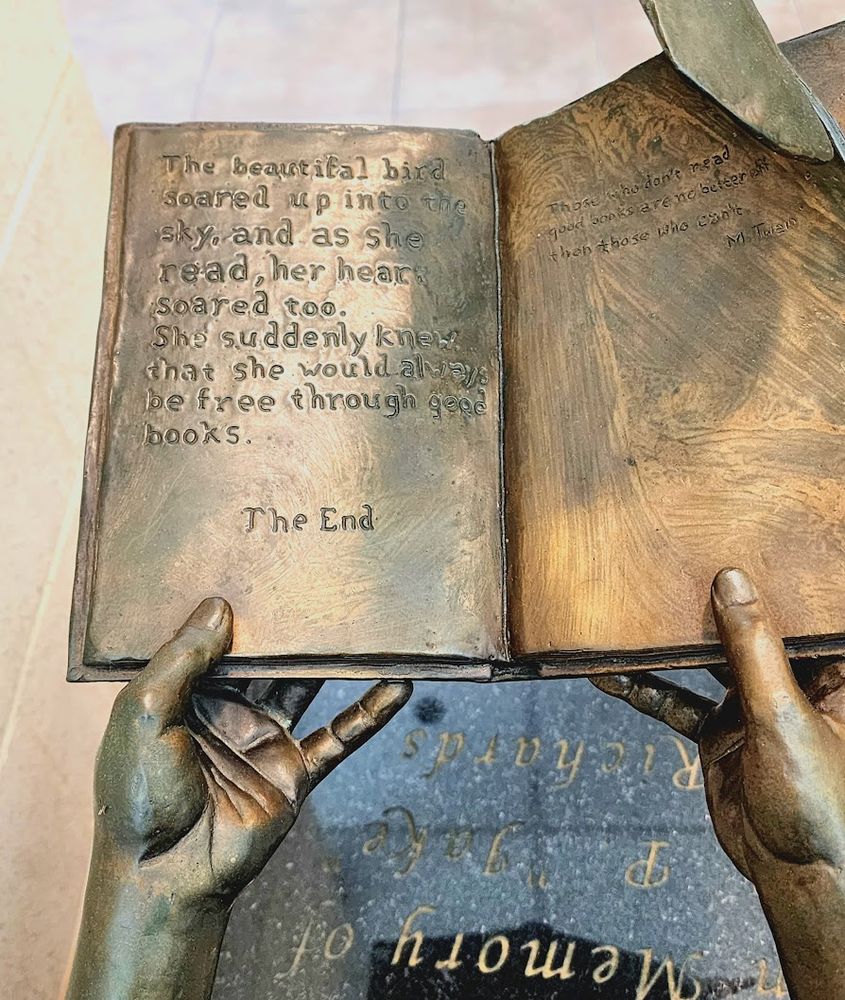 The beautiful bird
soared up into the
sky, and as she
read, her heart
soared too.
She suddenly knew
that she would always
be free through good
books.
The End
Those who don't read
good books are no better off
then those who can't.
M. Twain
Memory of
"Jake"
Richards